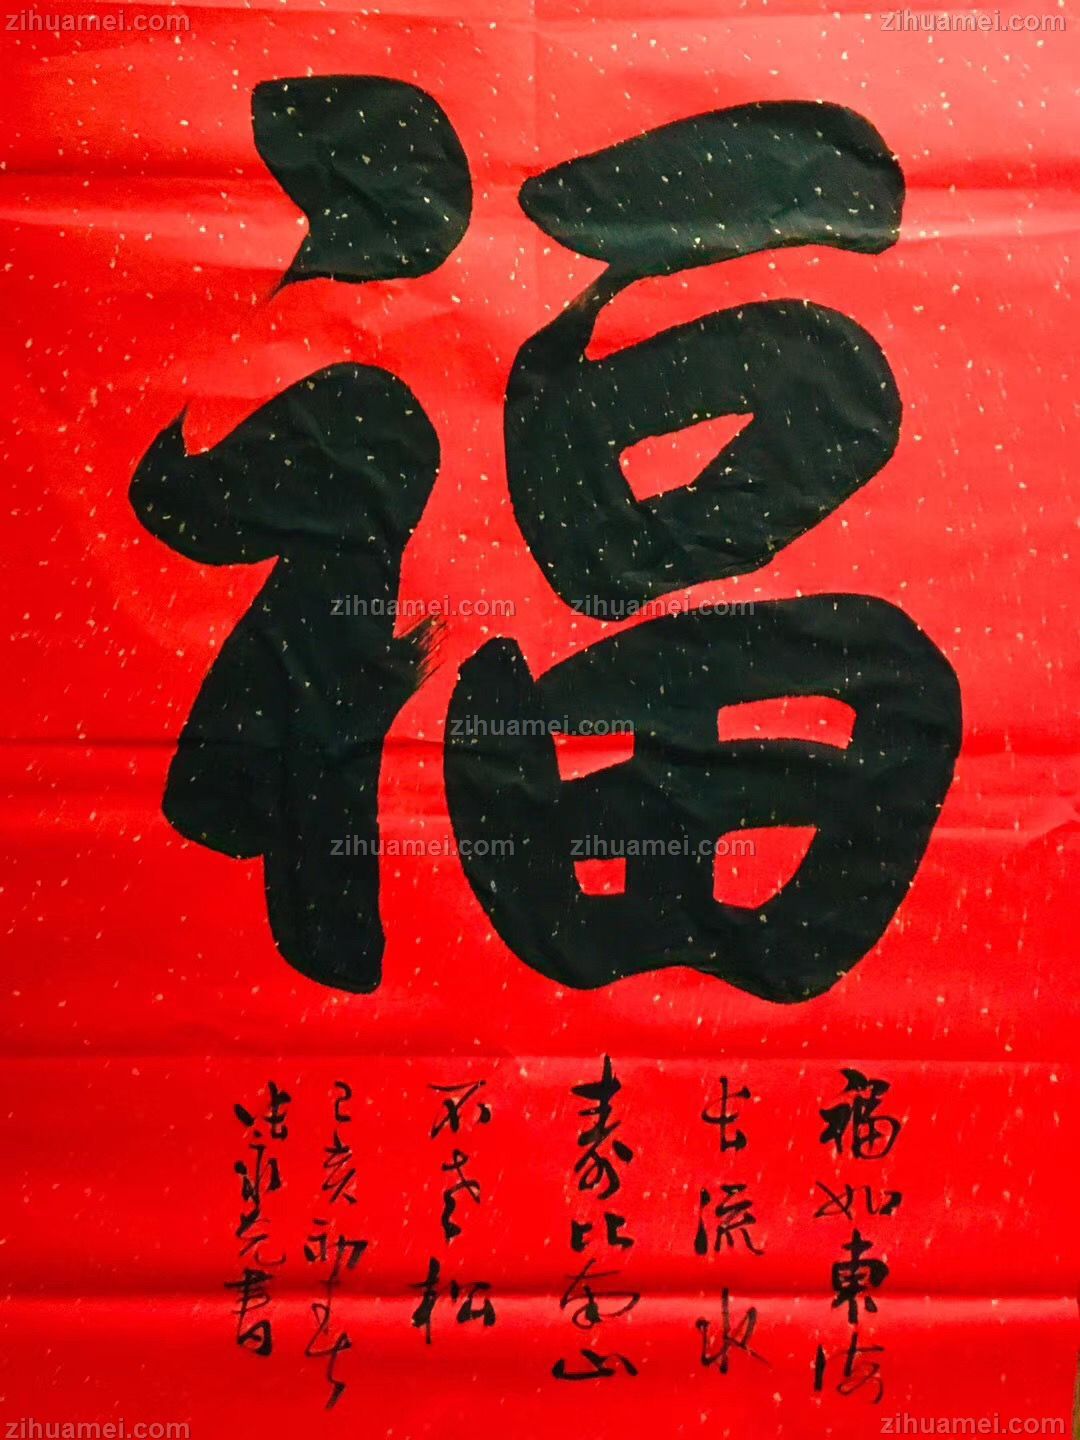 zihuamei.com
zihuamei.com
福
zihuamei.com
zihuamei.com
zihuamei.com
zihuamei.com
zihuamei.com
福如東海
长流水
寿比南山
不老松
己亥初春
永元書
zihuamei.com
zihuamei.com